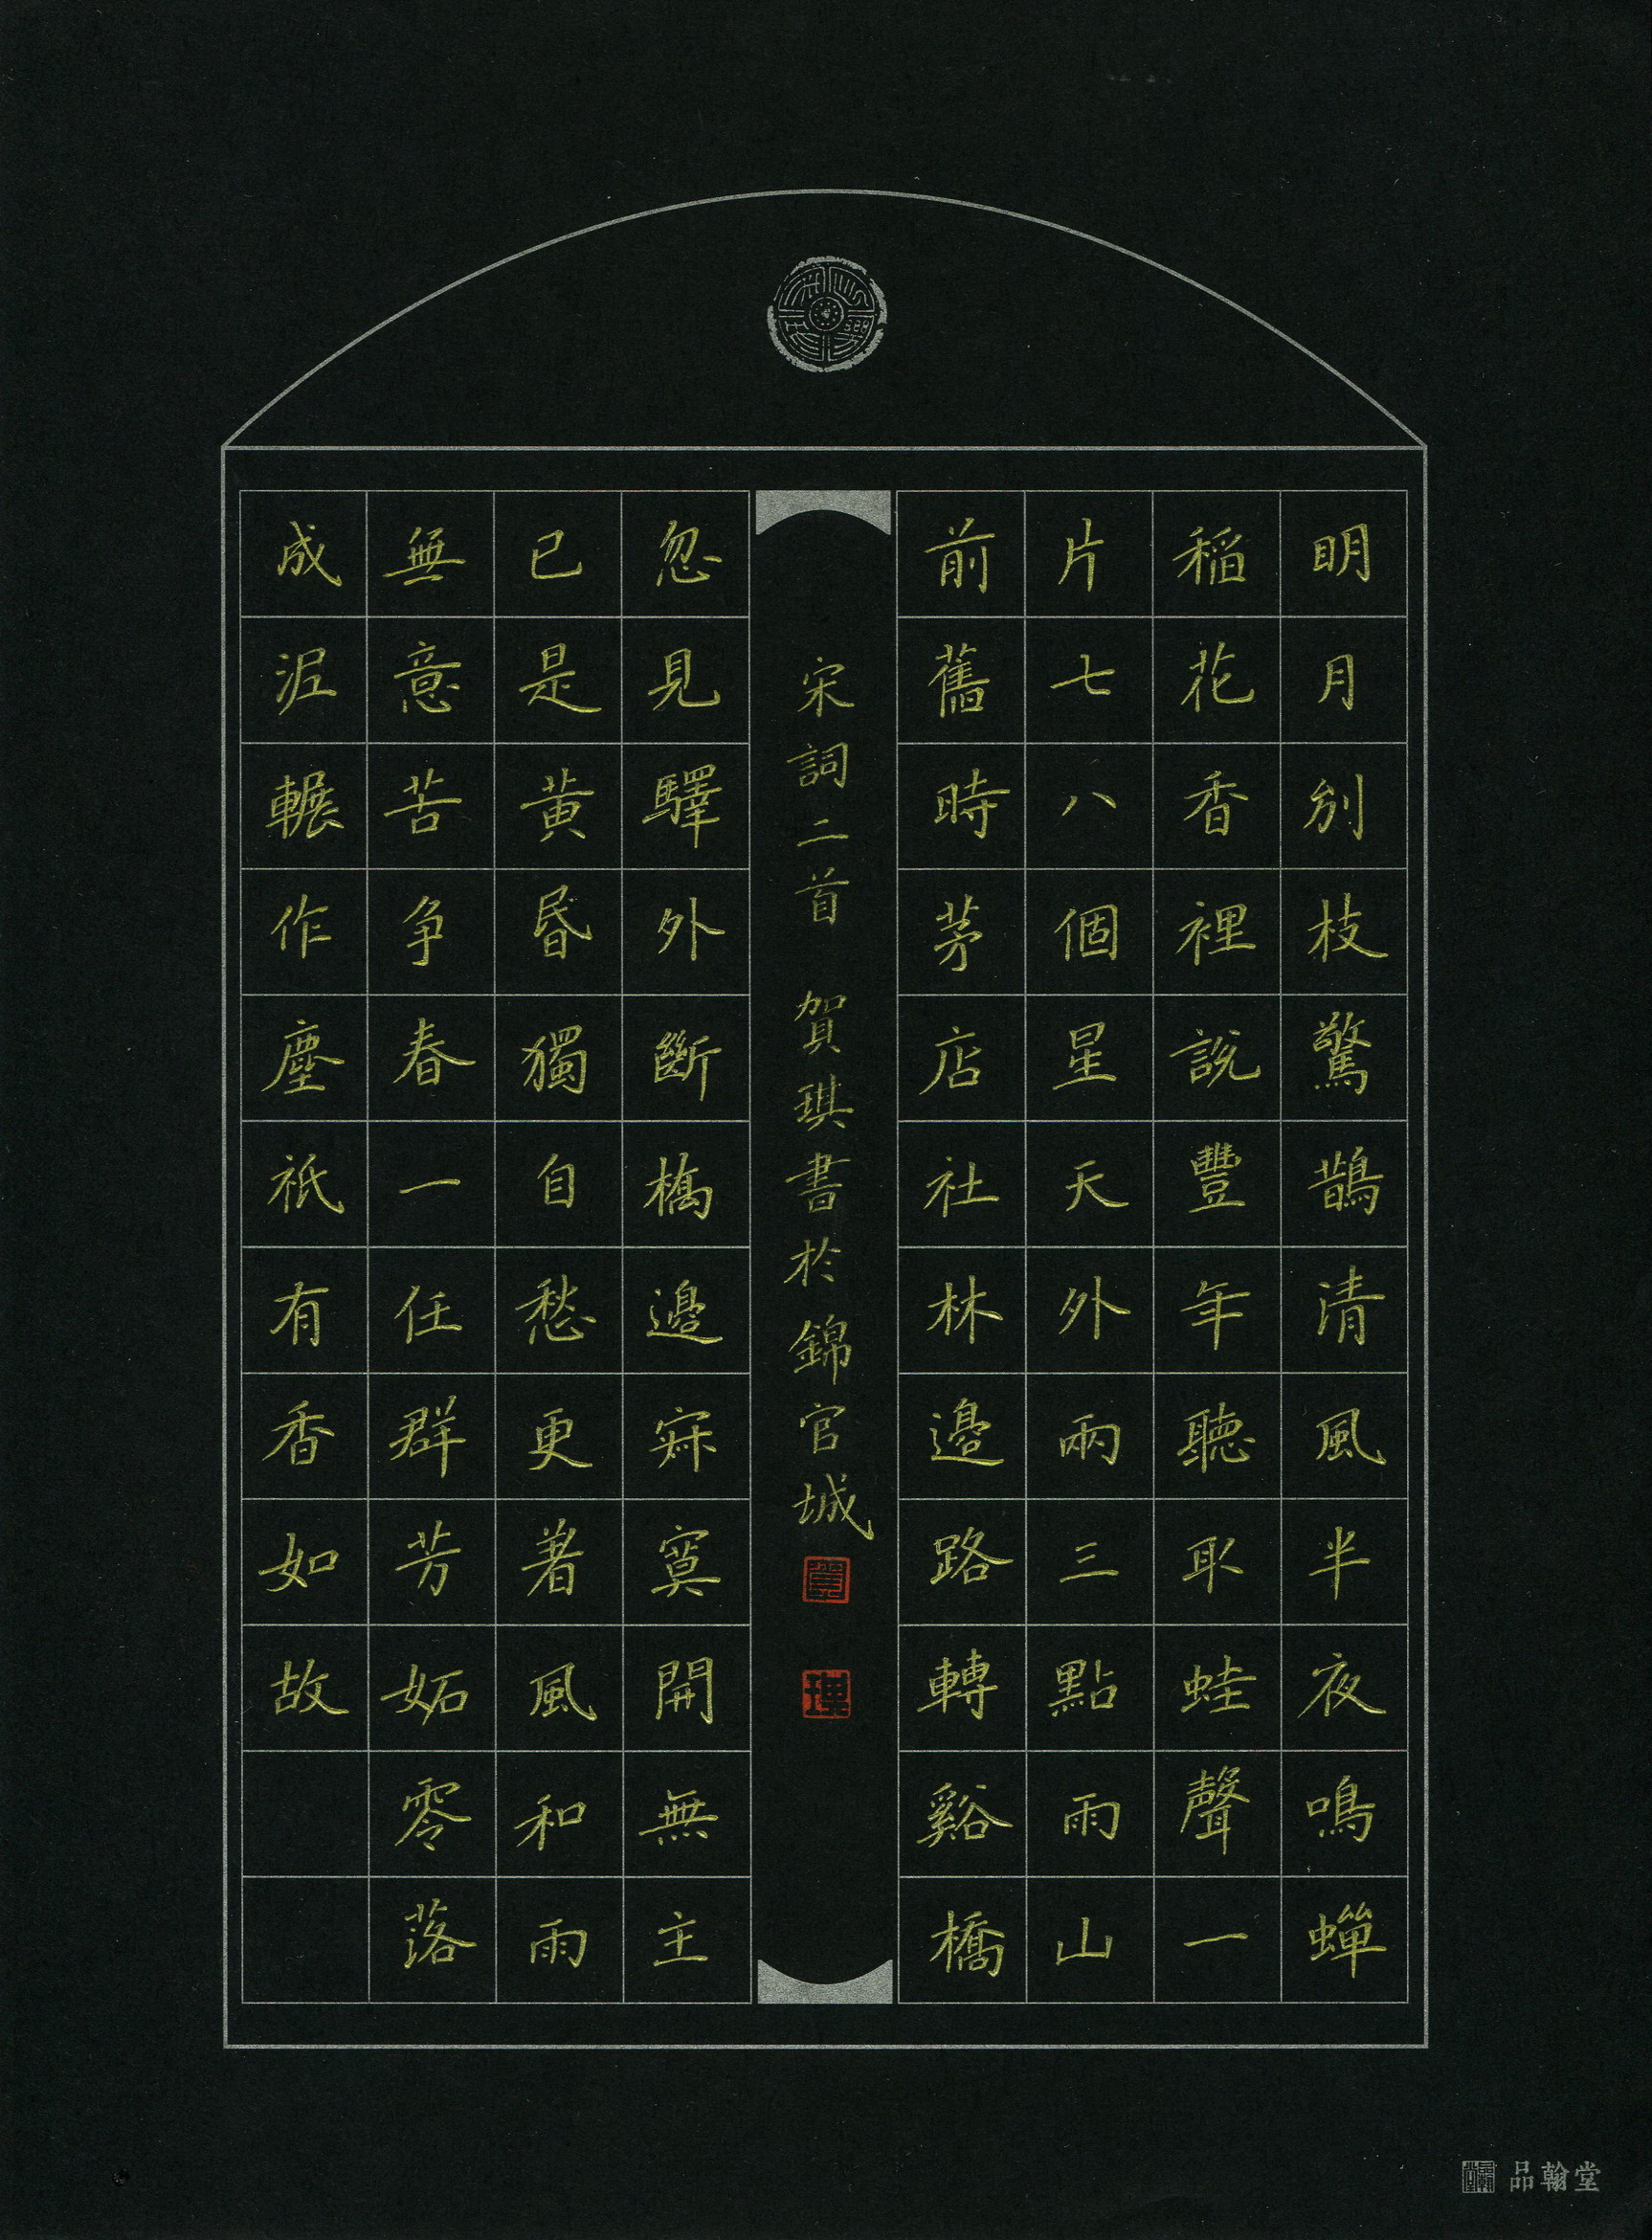 明月別枝驚鵲清風半夜鳴蟬
稻花香裡說豐年聽取蛙聲一
片七八個星天外兩三點雨山
前舊時茅店社林邊路轉谿橋
宋詞二首 賀琪書於錦官城
忽見驛外斷橋邊寂寞開無主
已是黃昏獨自愁更著風和雨
無意苦爭春一任群芳妬零落
成泥輾作塵祇有香如故
品翰堂